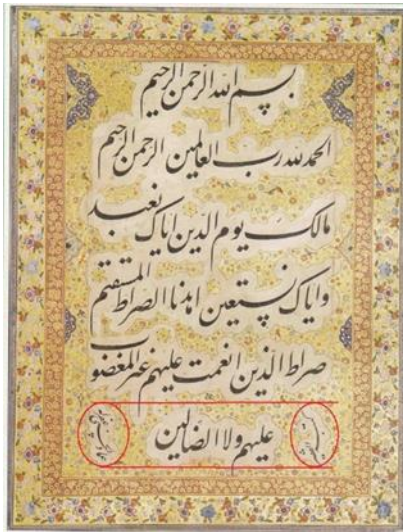 بسم الله الرحمن الرحیم
الحمد لله رب العالمین الرحمن الرحیم
مالک یوم الدین ایاک نعبد
وایاک نستعین اهدنا الصراط المستقیم
صراط الذین انعمت علیهم غیر المغضوب
علیهم ولا الضالین